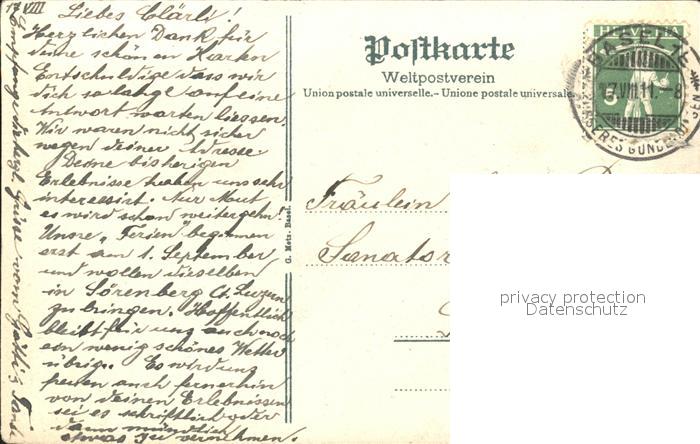 VIII
Liebes Clärli!
Herzlichen Dank für
deine schönen Karten
Entschuldige dass wir
dich so lange auf eine
Antwort warten liessen.
Wir waren nicht sicher
wegen deiner Adresse.
Deine bisherigen
Erlebnisse haben uns sehr
interessirt. Nur Mut
es wird schon weitergehn!
Unsre „Ferien" beginnen
erst am 1. September
und wollen dieselben
in Sörenberg Ct. Luzern
zu bringen. Hoffentlich
bleibt für uns auch noch
ein wenig schönes Wetter
übrig. Es wird uns
freuen auch fernerhin
von deinen Erlebnissen
sei es schriftlich oder
dann mündlich
etwas zu vernehmen.
Empfange herzl. Grüsse von
G. Metz, Basel
Postkarte
Weltpostverein
Union postale universelle. - Unione postale universale
HELVETIA
5
BASEL 17
VIII.11.-8
ÄUSSERES GUNDELDINGEN
Fräulein
Sanator
privacy protection
Datenschutz